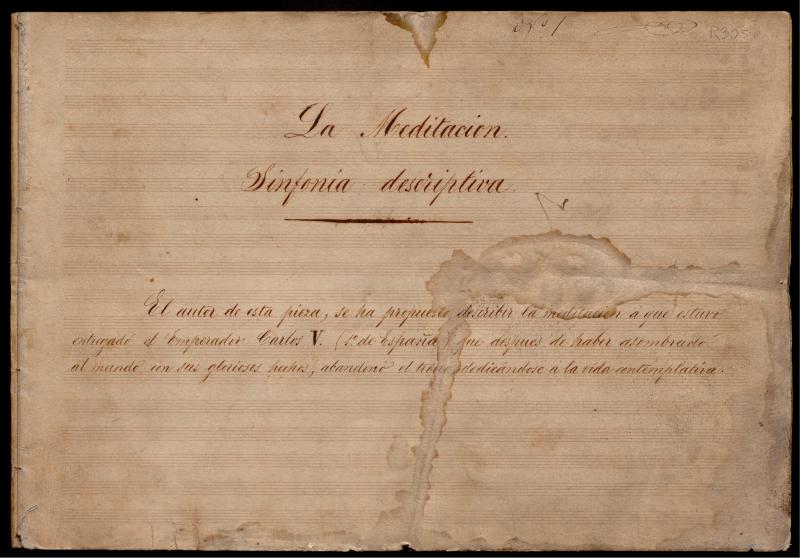 Nº 1
R305
La Meditacion.
Sinfonía descriptiva.
El autor de esta pieza, se ha propuesto describir la meditacion á que estuvo
entregado el Emperador Carlos V. (1º de España) que despues de haber asombrado
al mundo con sus gloriosos hechos, abandonó el trono dedicándose á la vida contemplativa.